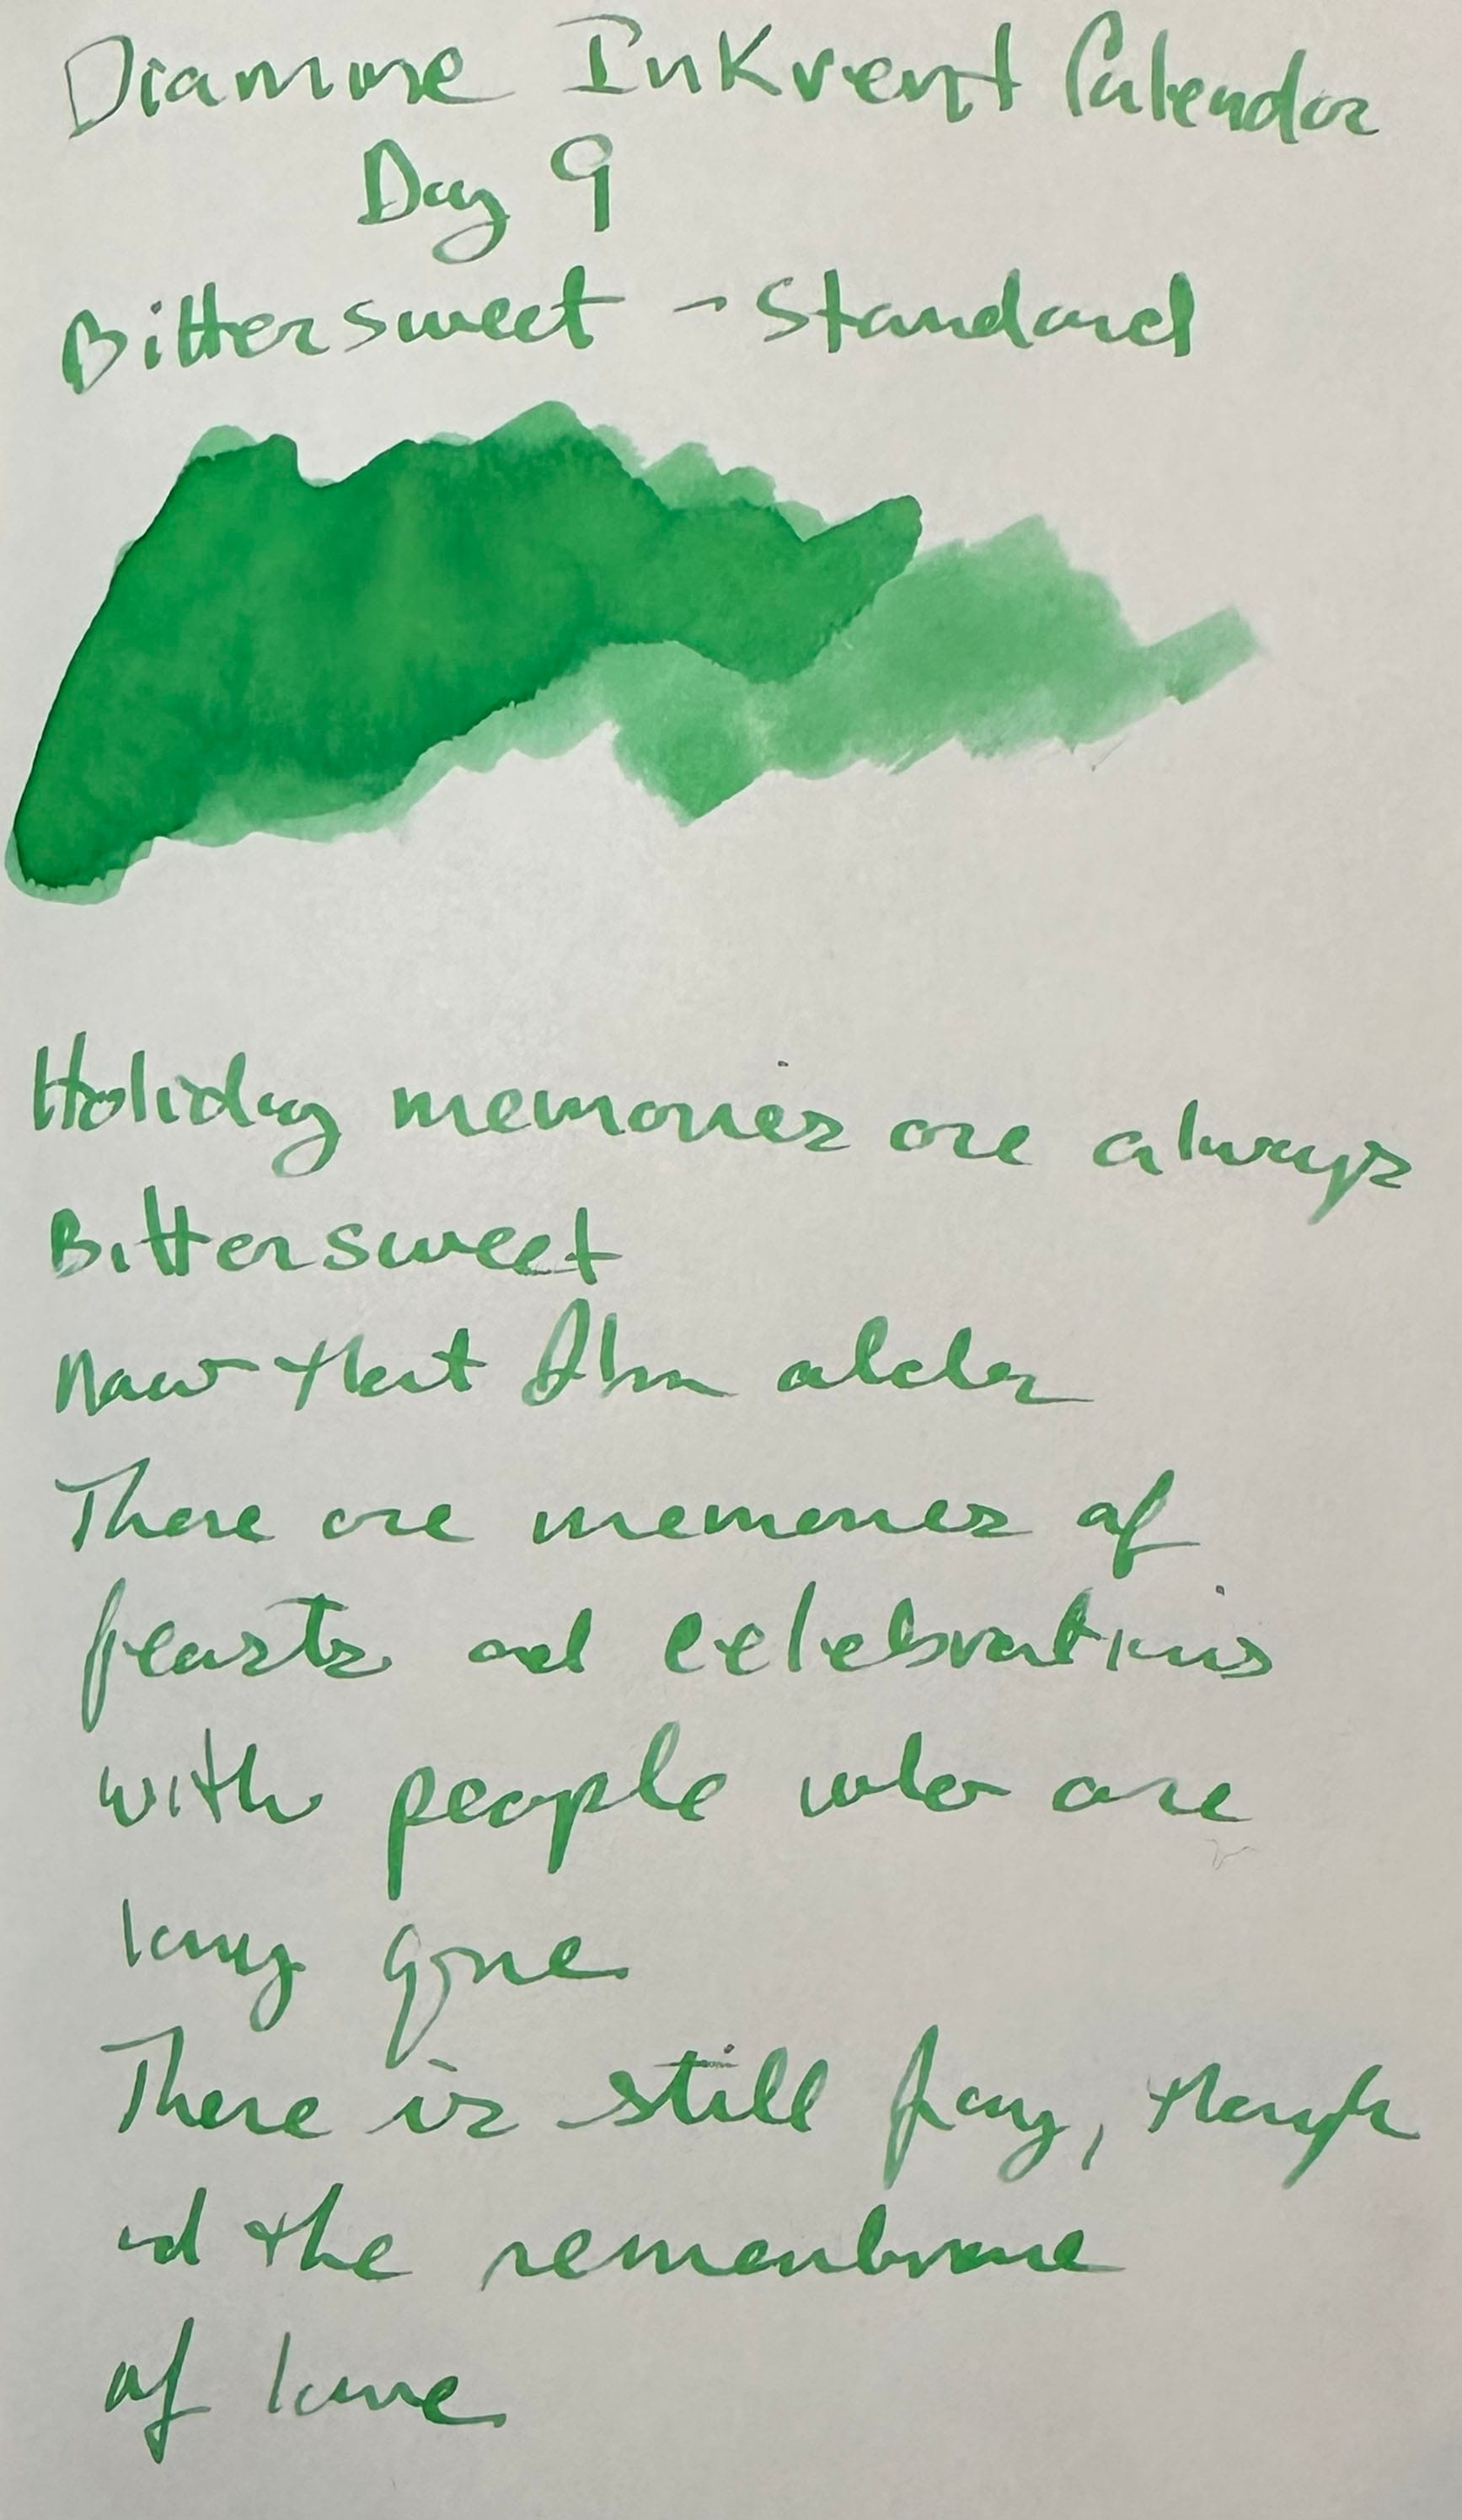 Diamine InKvent Calendar
Day 9
Bittersweet - Standard
Holiday memories are always
Bittersweet
Now that I'm older
There are memories of
feasts and celebrations
with people who are
long gone
There is still joy, though
and the remembrance
of love